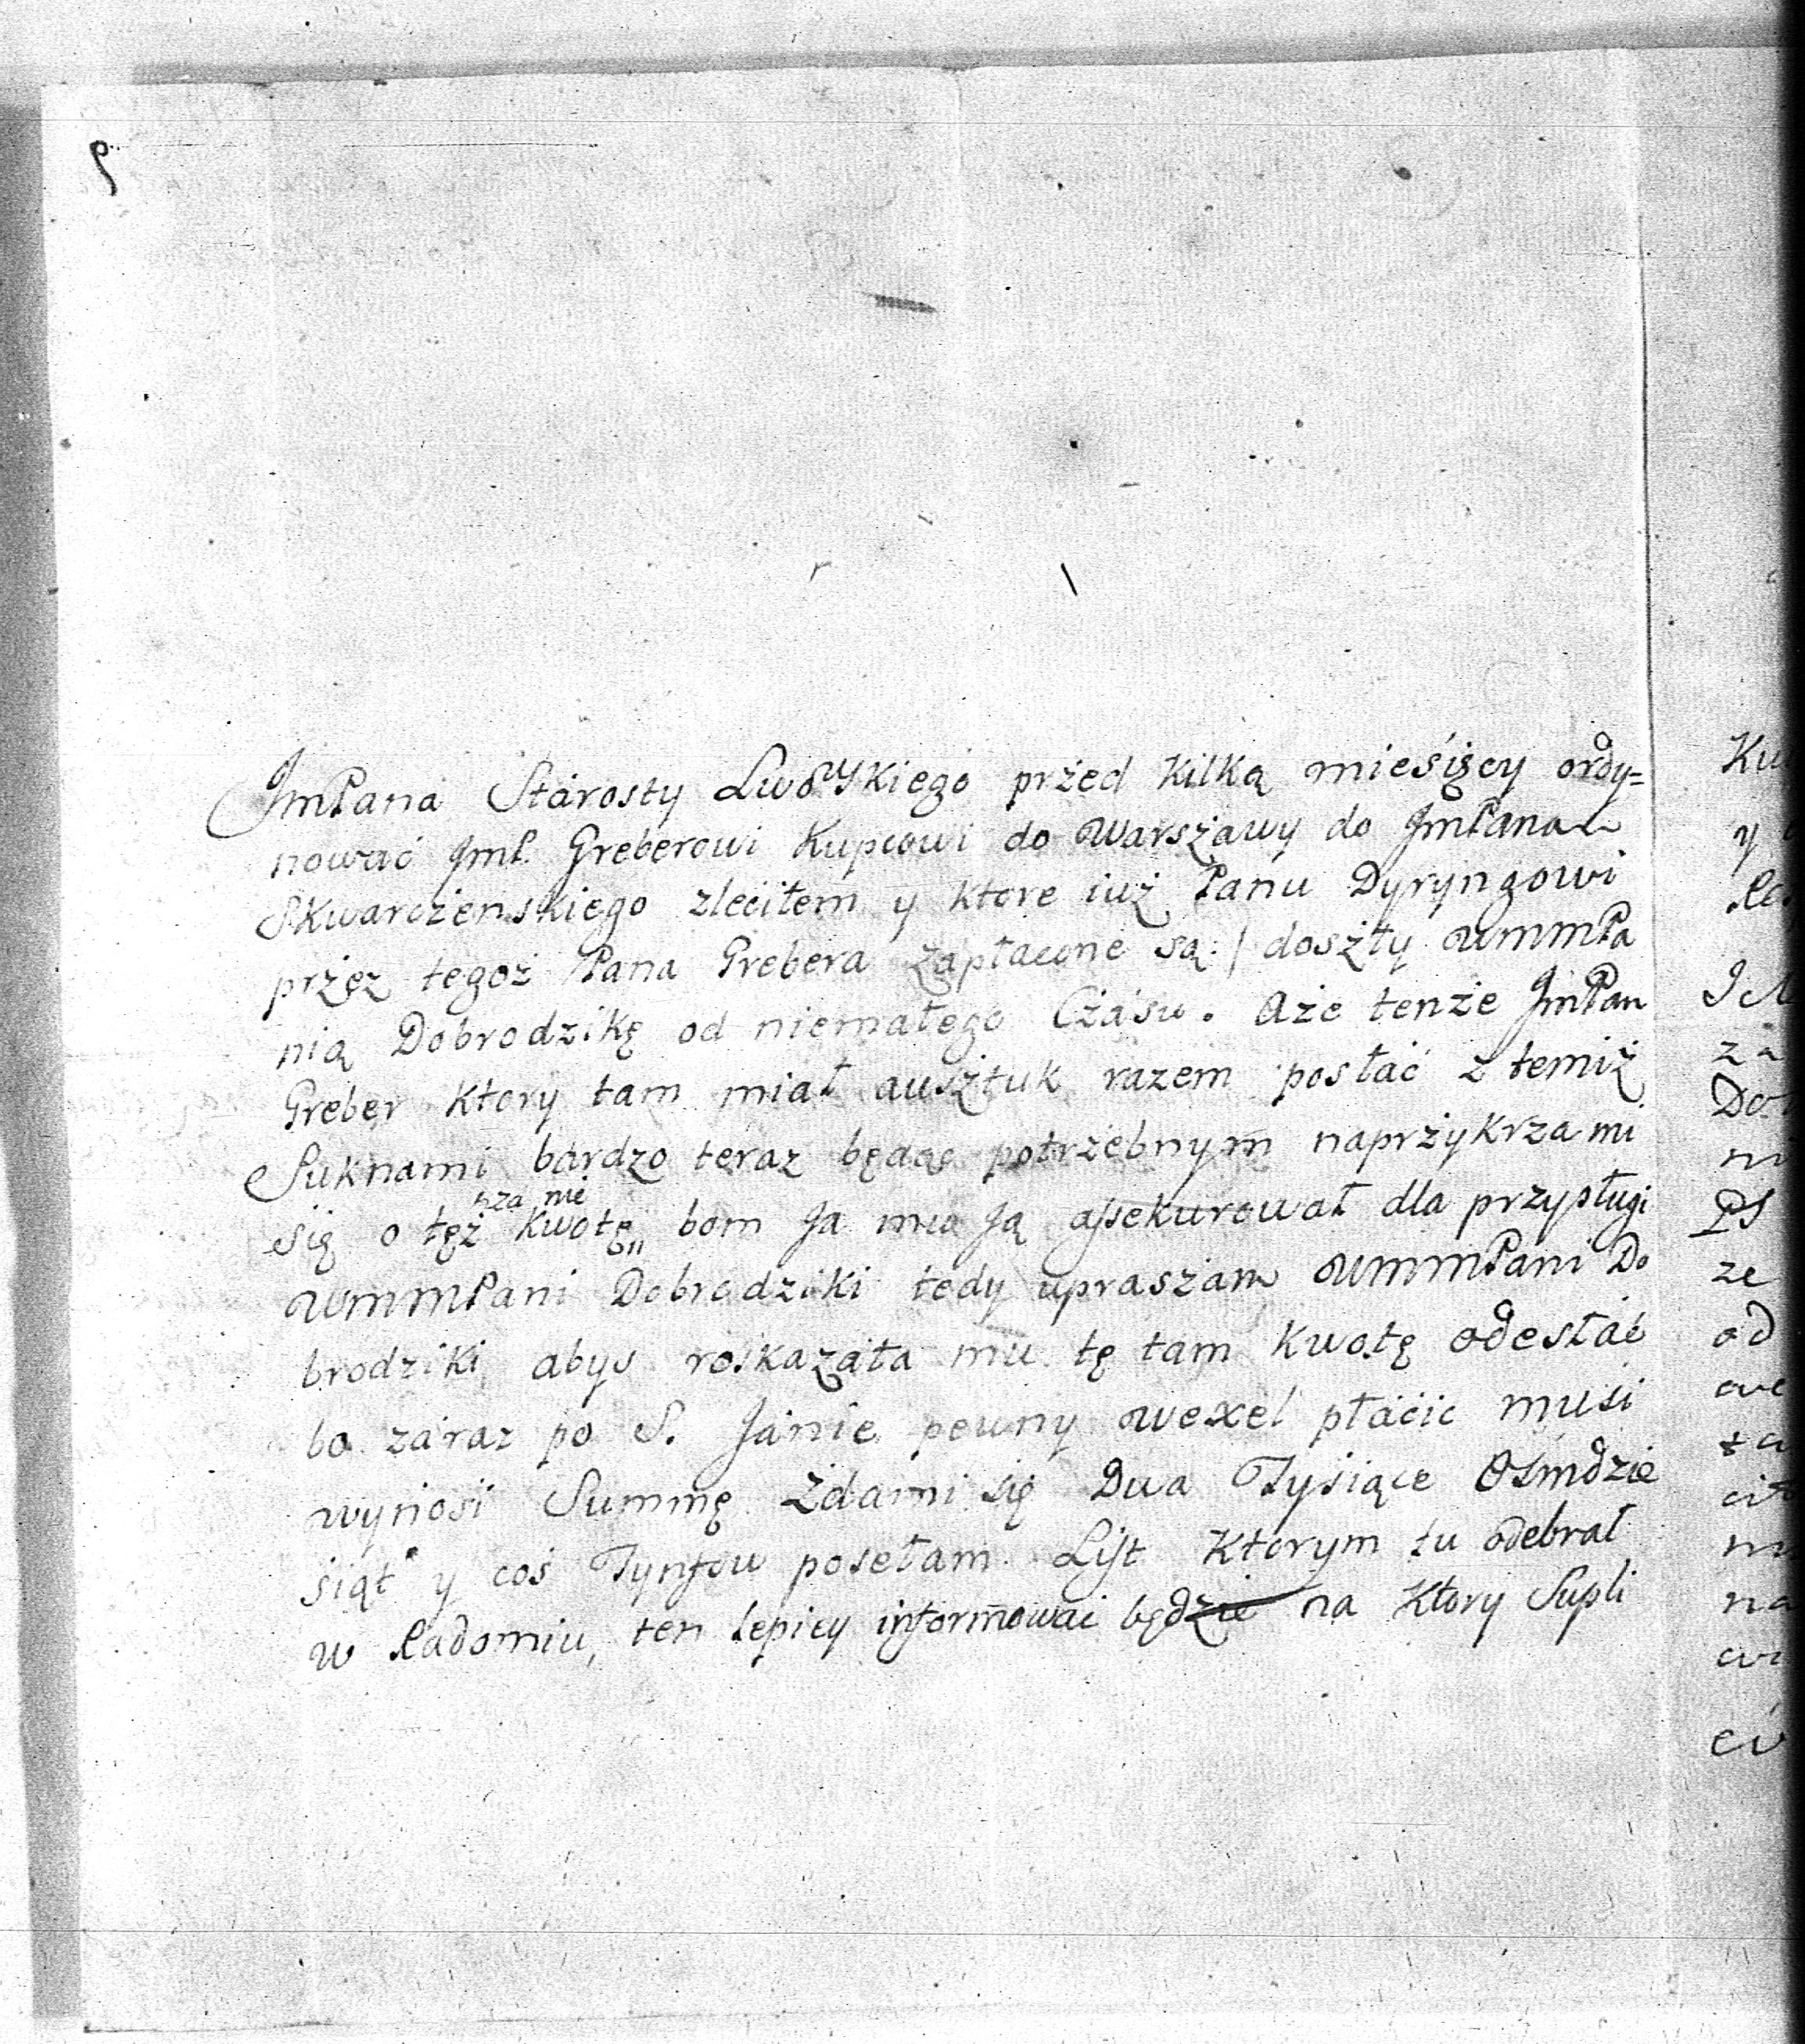 JmPana Stárosty Lwowskiego przed kilką mieśięcy ordy=
nować JmP. Greberowi Kupcowi do Warszawy do JmPana
Skwarczenskiego zlećiłem y ktore iuż Panu Dyryngowi
przez tegoż Pana Grebera zapłacone są :/ doszły WMMPa
nią Dobrodzikę od niemałego Czásu. Aże tenże JmPan
Greber ktory tam miał ausztuk razem posłáć z temiż
Suknami bardzo teraz będąc potrzebnym naprzykrza mi
się o tęż kwotę „za nie„ bom Ja mu Ją assekurował dla przysługi
WMMPani Dobrodziki tedy upraszam WMMPani Do
brodziki abys roskazała mu tę tam kwotę odesłáć
bo záraz po S. Jánie pewny wexel płáćić musi
wynosi Summę zdami się Dwa Tysiące Osmdzie
siąt y coś Tynfow posełam List ktorym tu odebrał
w Radomiu, ten lepiey informować będzie na ktory Supli
Ku
y
J
zá
Do
ni
PS
ze
od
cito
na